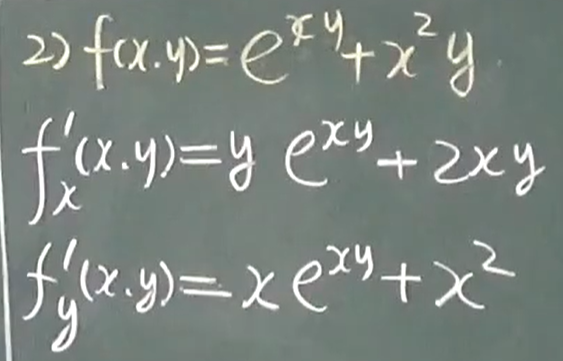 2) f(x.y)=e^{xy}+x^2y.
f'_x(x.y)=y e^{xy}+2xy
f'_y(x.y)=xe^{xy}+x^2